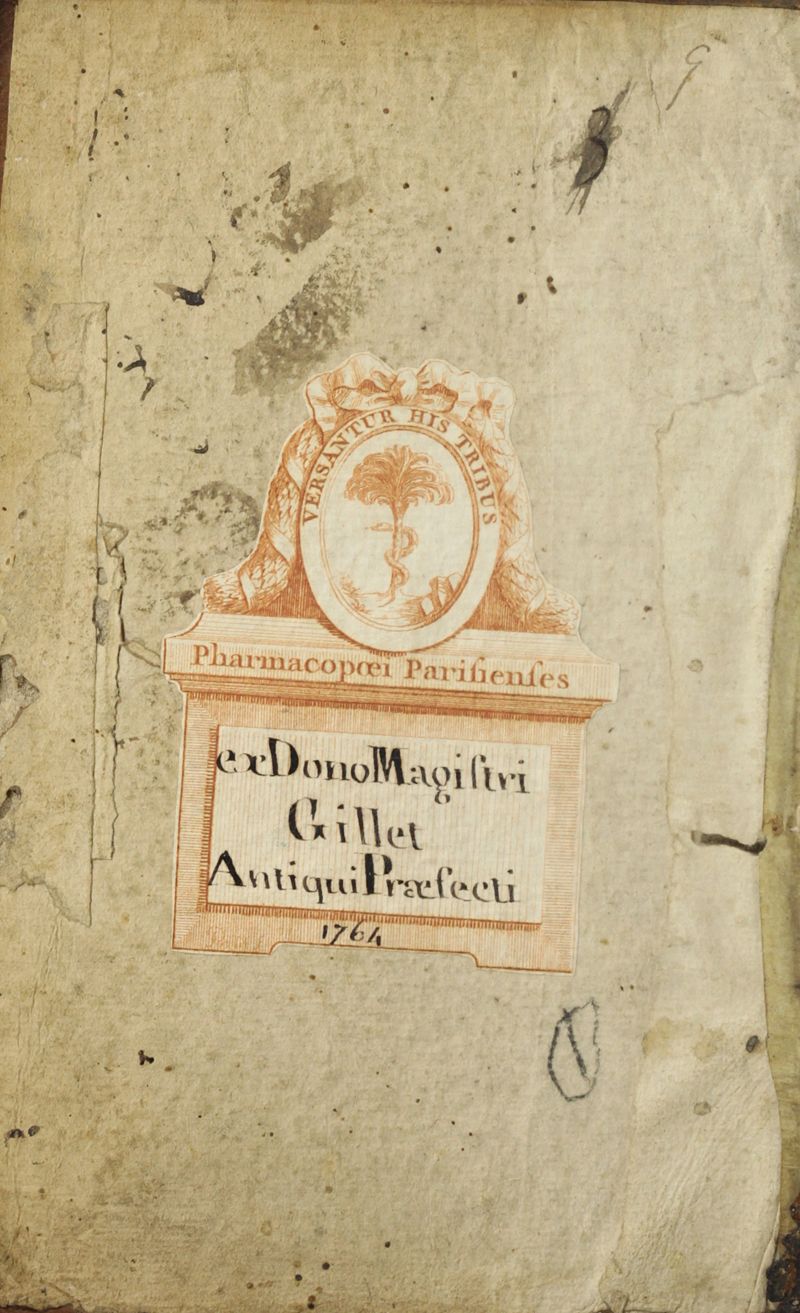 9
VERSANTUR HIS TRIBUS
Pharmacopœi Pariſienſes
ex Dono Magiſtri
Gillet
Antiqui Præfecti
1764